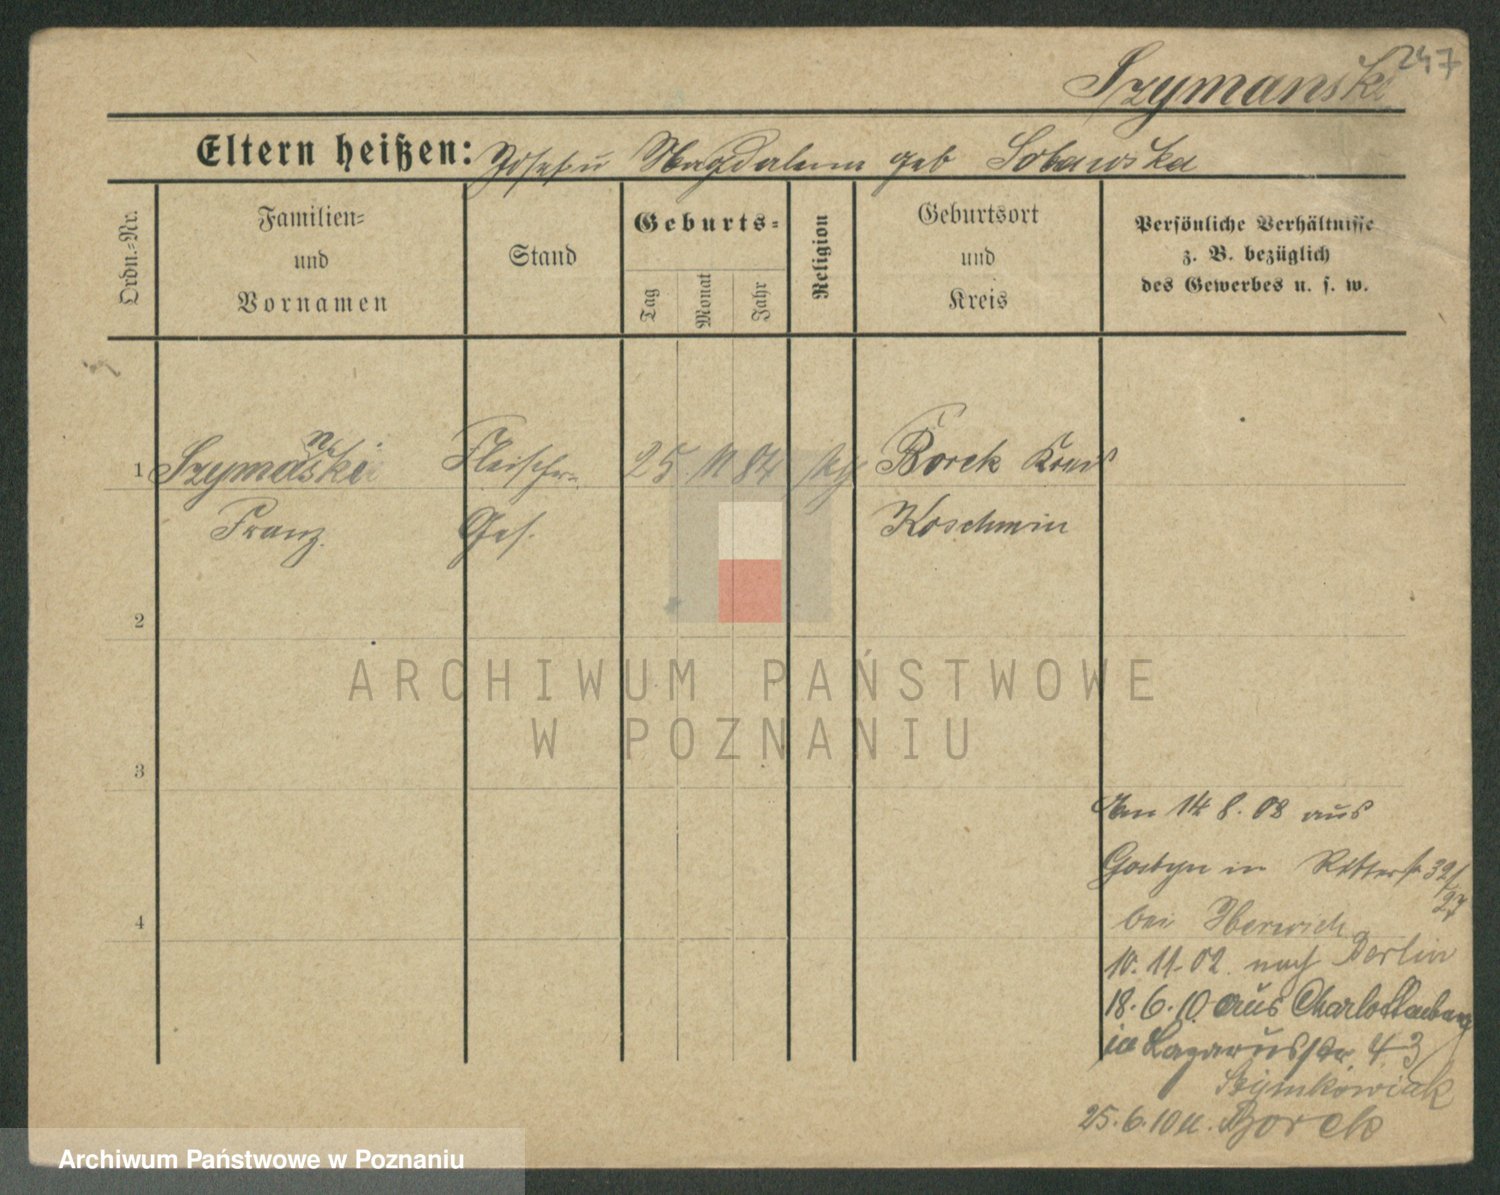 247
Szymanski
Eltern heißen: Josef u Magdalena geb Sobawska
Ordn.-Nr.
Familien-
und
Vornamen
Stand
Geburts-
Tag
Monat
Jahr
Religion
Geburtsort
und
Kreis
Persönliche Verhältnisse
z. B. bezüglich
des Gewerbes u. s. w.
1 Szymanski Fleischer- 25 11 84 Borek Kreis
Franz. Ges. Koschmin
2
ARCHIWUM PAŃSTWOWE
W POZNANIU
3
Am 14 8. 08 aus
Gostyn in Ritterstr 32/27
4
bei
10. 11. 02. nach Berlin
18. 6. 10 aus Charlottenburg
in Lazarusstr. 43
Szymkowiak
25. 6. 10 n. Borek
Archiwum Państwowe w Poznaniu